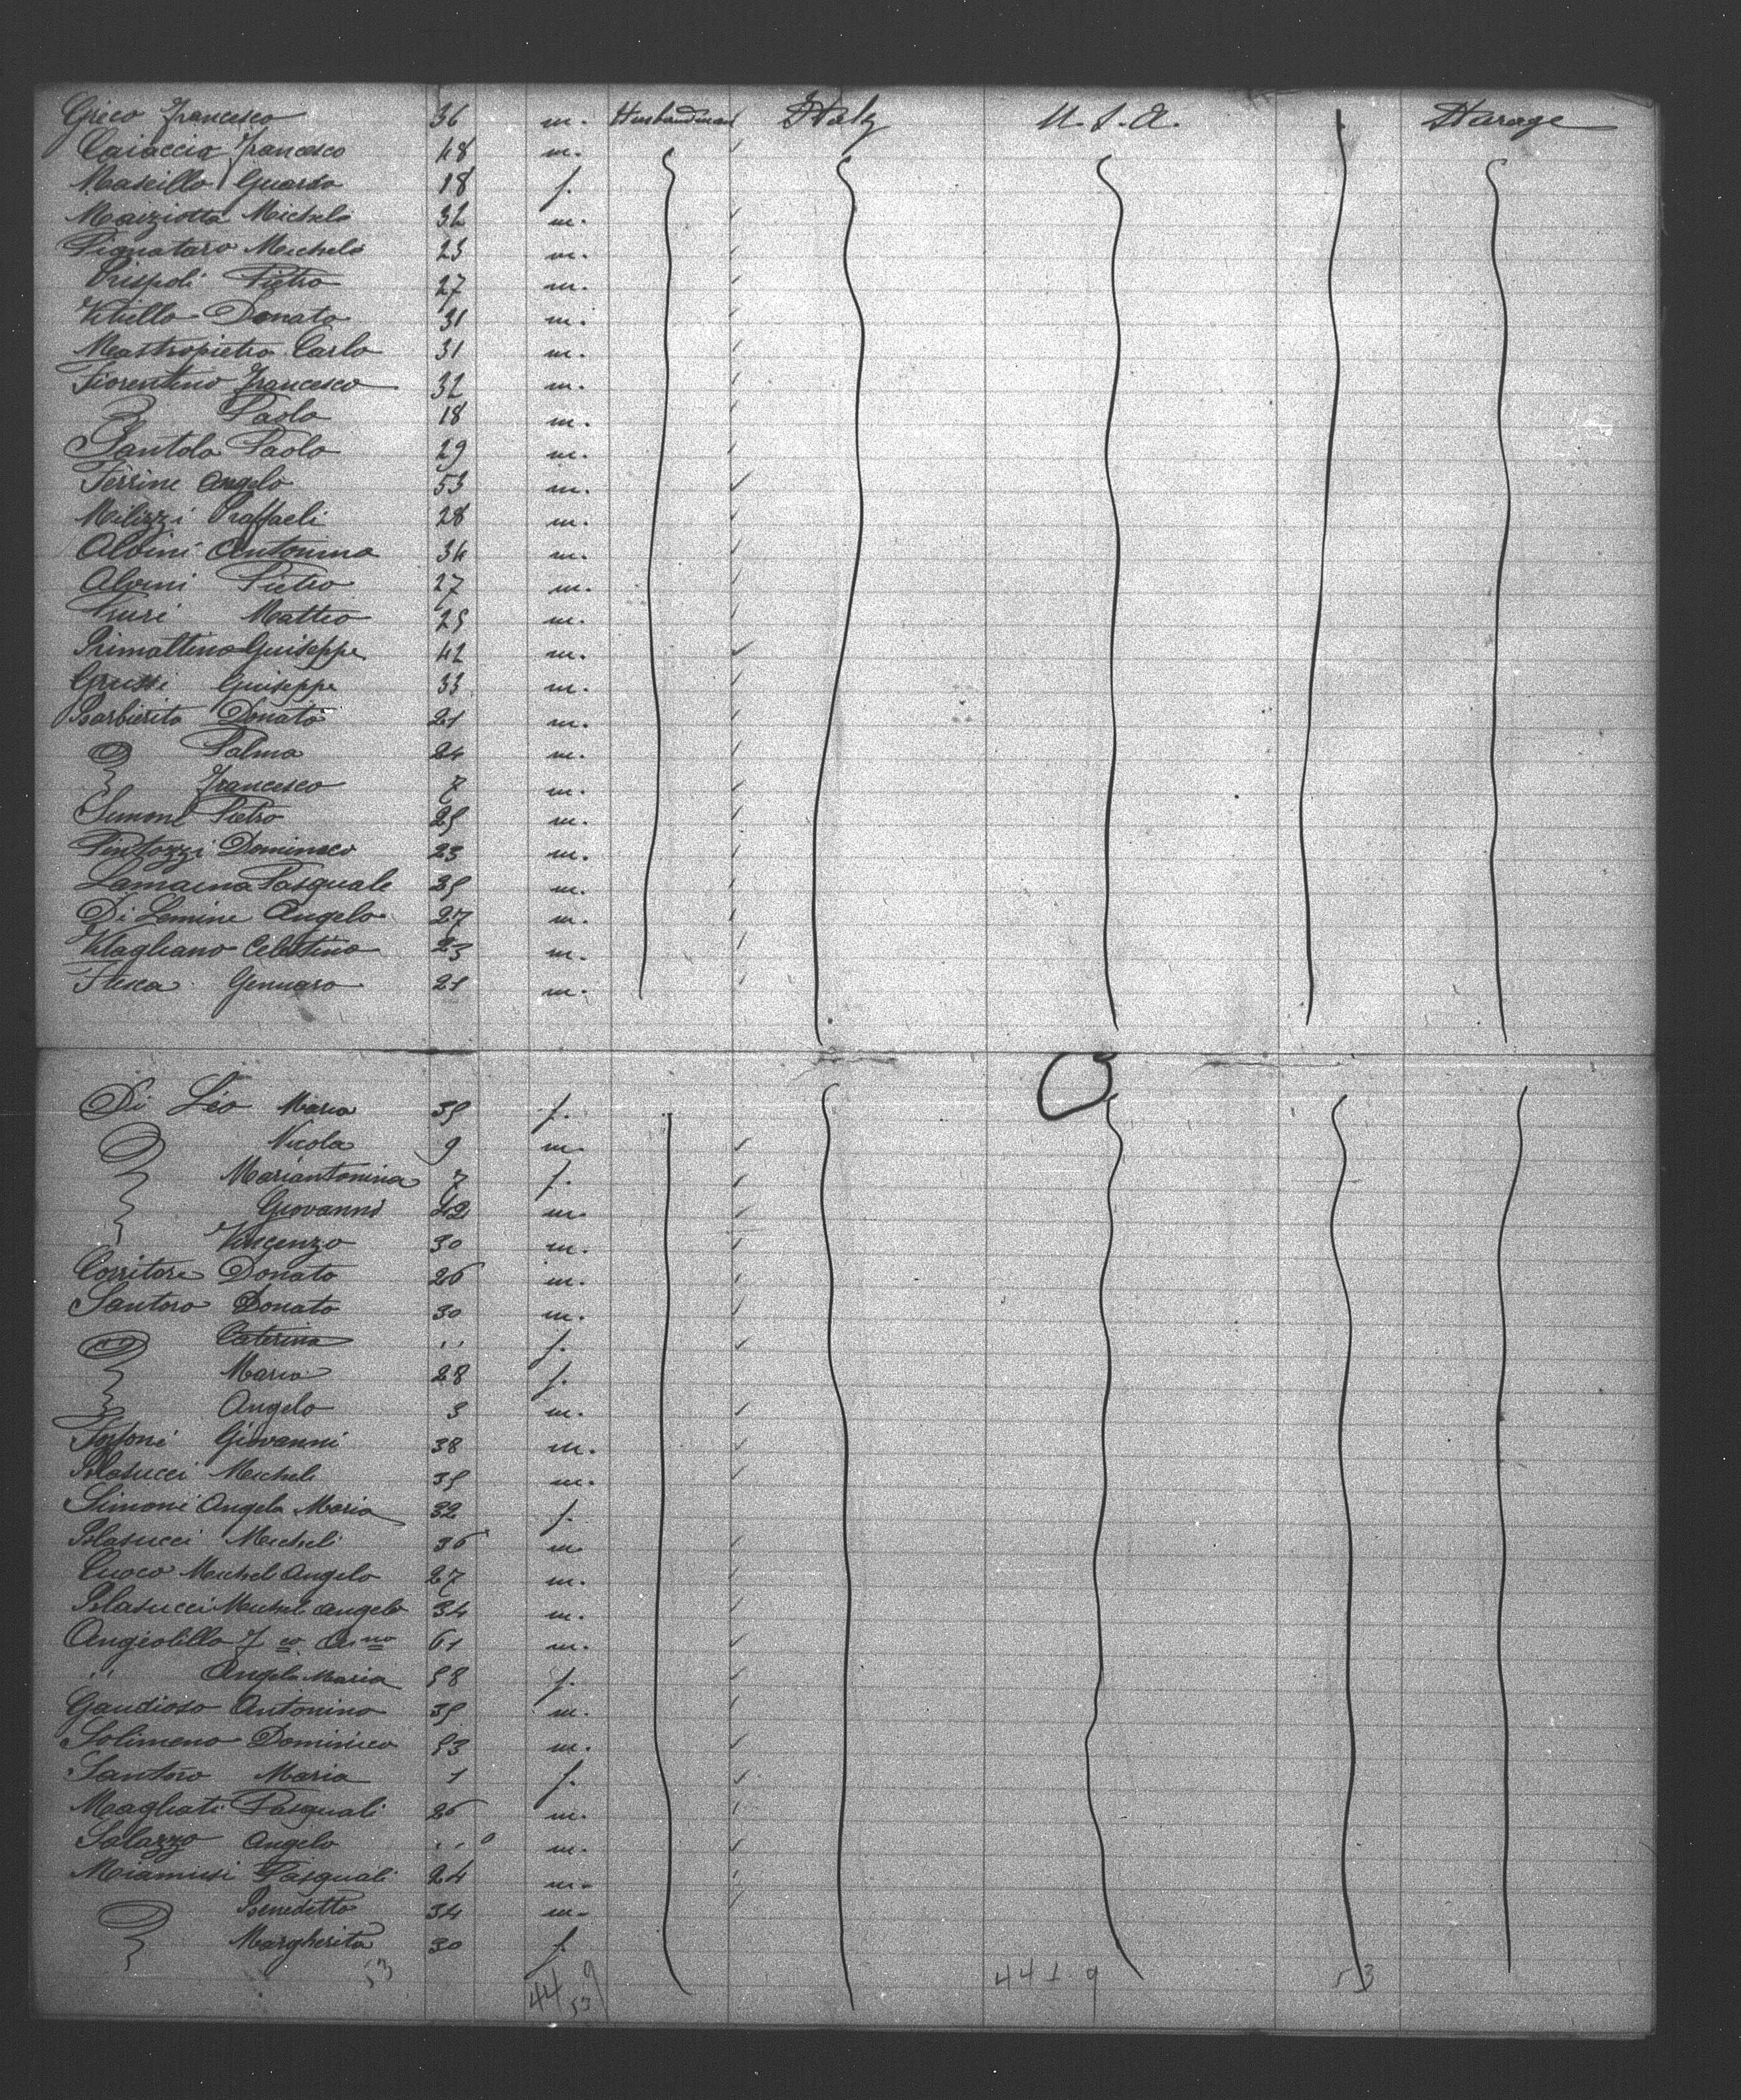 Greco Francesco 36 m. Husbandman Italy U.S.A. Starage
Caiaccia Francesco 48 m.
Mascillo Guarsa 18 f.
Maiziotta Michele 32 m.
Pignataro Michele 23 m.
Crispoli Pietro 27 m.
Vitiello Donato 31 m.
Mastropietro Carlo 31 m.
Fiorentino Francesco 32 m.
Paolo 18 m.
Santola Paolo 29 m.
Ferrine Angelo 53 m.
Milizzi Raffaeli 28 m.
Albini Antonino 34 m.
Alvini Pietro 27 m.
Matteo 25 m.
Primaltino Guiseppe 42 m.
Grussi Guiseppe 33 m.
Barbierito Donato 21 m.
Palma 24 m.
Francesco 7 m.
Simone Pietro 25 m.
Pintozzi Dominico 23 m.
Lamacna Pasquale 35 m.
Di Lemine Angelo 27 m.
Vitagliano Celestino 23 m.
Stesca Gennaro 21 m.
Di Léo Maria 35 f.
Nicola 9 m.
Mariantonina 7 f.
Giovanni 42 m.
Vincenzo 30 m.
Corritore Donato 26 m.
Santoro Donato 30 m.
Caterina " f.
Maria 28 f.
Angelo 3 m.
Giovanni 38 m.
Blasucci Micheli 35 m.
Simoni Angela Maria 32 f.
Blasucci Micheli 36 m
Cuoco Michel Angelo 27 m.
Blasucci Michel angelo 34 m.
Angiolillo F co An no 61 m.
" Angela Maria 58 f.
Gaudioso Antonino 35 m.
Solimeno Dominico 53 m.
Santoro Maria 1 f.
Magliati Pasquali 26 m.
Salazzo Angelo " m.
Miamusi Pasquali 24 m.
Benedetto 34 m.
Margherita 30 f.
53 44 9 53 44 1 9 53